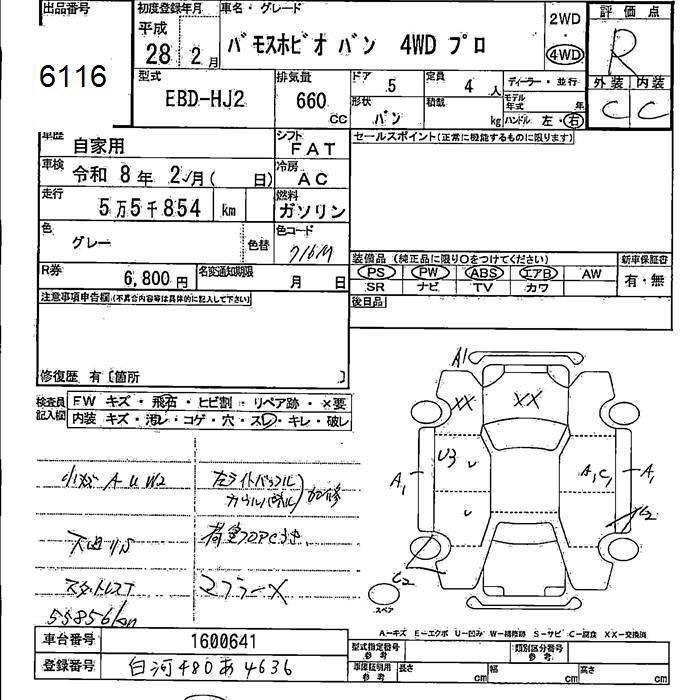 出品番号
6116
初度登録年月
平成
28年 2月
車名・グレード
バモスホビオ バン 4WD プロ
2WD
・
4WD
評価点
R
外装 内装
C C
型式
EBD-HJ2
排気量
660
CC
ドア
5
定員
4 人
ディーラー・並行
形状
バン
積載
kg
モデル年式 年
ハンドル 左・右
車歴
自家用
シフト
FAT
車検
令和 8年 2月( 日)
冷房
AC
走行
5万5千854 km
燃料
ガソリン
色
グレー
色替
色コード
R券
6,800円
名変通知期限
月 日
セールスポイント(正常に機能するものに限ります)
装備品 (純正品に限り○をつけてください)
PS PW ABS エアB AW
SR ナビ TV カワ
新車保証書
有・無
後日品
注意事項申告欄(不具合内容等は具体的に記入して下さい)
修復歴 有〔箇所 〕
検査員記入欄
FW キズ・飛石・ヒビ割・リペア跡・×要
内装 キズ・汚レ・コゲ・穴・スレ・キレ・破レ
A1
XX XX
U3
A1
A1C1
A1
C2
C2
スペア
小キズ A U W2
左ライトバッフル
カウルパネル
加修
荷室フロアCさき
スタットレス
マフラーX
55856km
A―キズ E―エクボ U―凹み W―補修跡 S―サビ C―腐食 XX―交換済
車台番号
1600641
登録番号
白河480あ4636
型式指定番号
参考
類別区分番号
参考
車庫証明用
参考
長さ cm
幅 cm
高さ cm